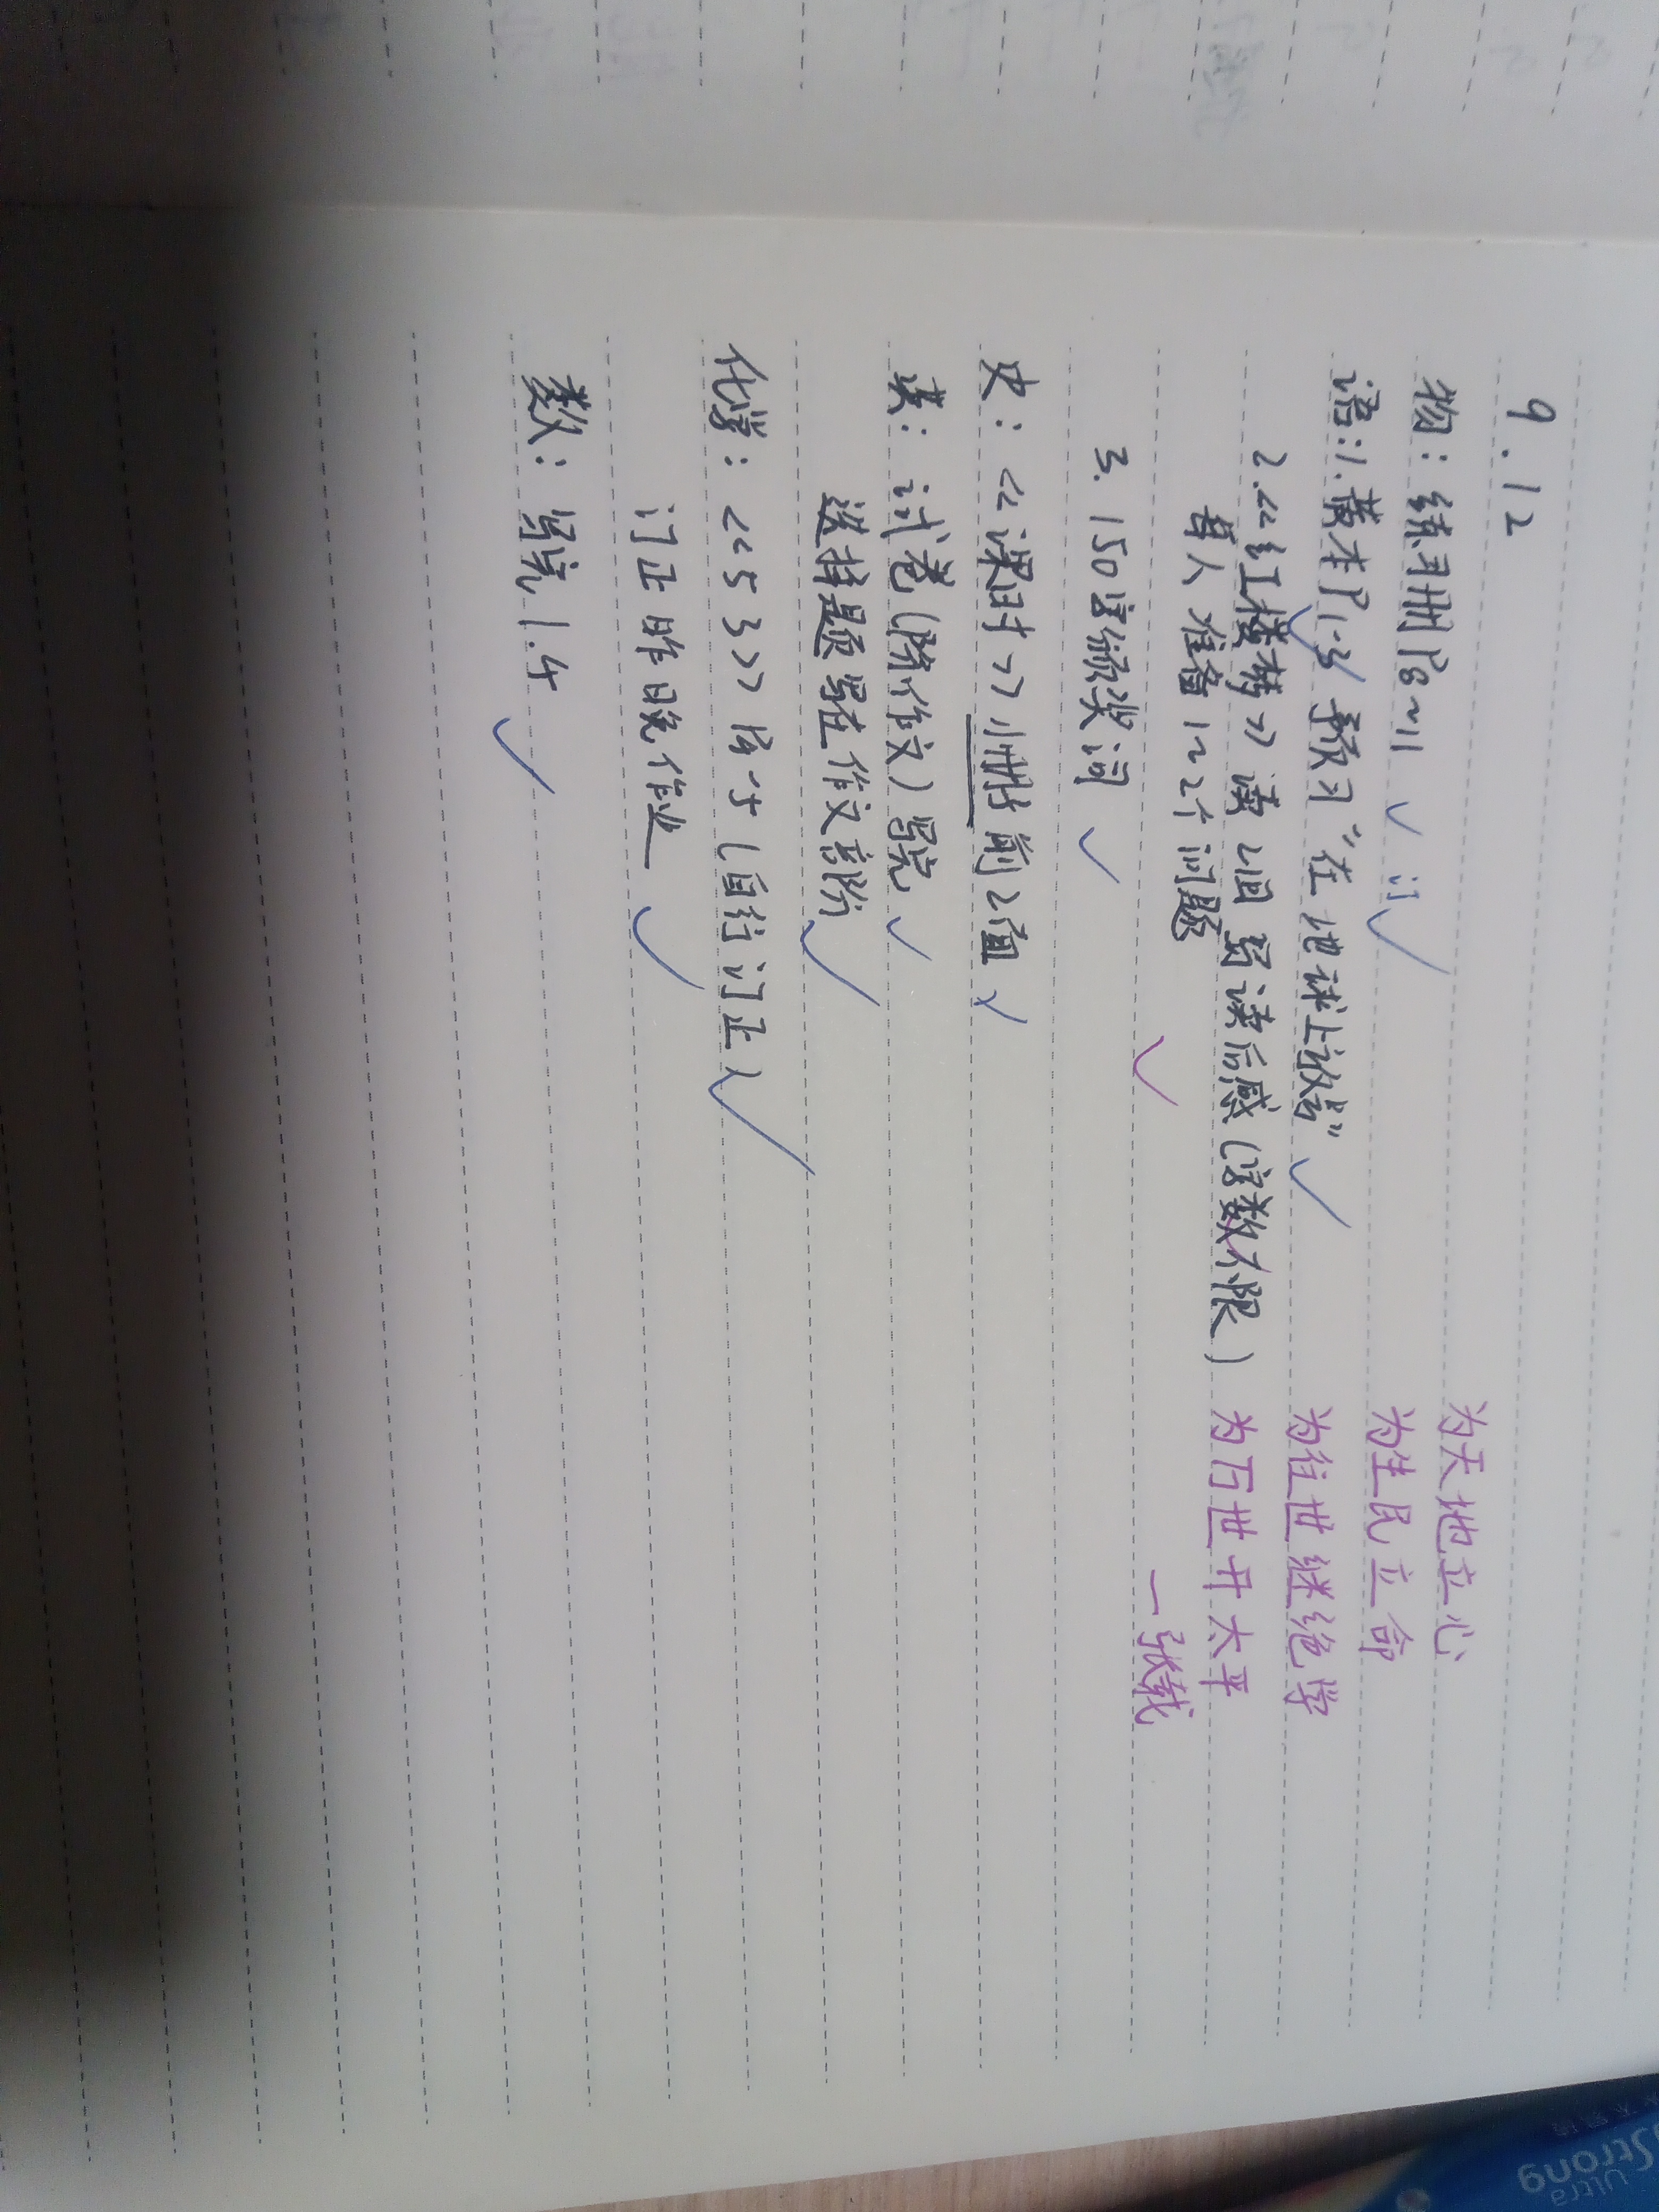 9.12
物：练习册P8~11 订
语：1.黄本P1-3 预习“在地球上放号”
2.《红楼梦》读2回 写读后感（字数不限）
每人准备1~2个问题
3. 150字颁奖词
史：《课时》小册前2面
英：试卷（除作文）写完
选择题写在作文高阶
化学：《53》（自行订正）
订正昨日晚作业
数：写完1.4
为天地立心
为生民立命
为往世继绝学
为万世开太平
—张载
Ultra
Strong